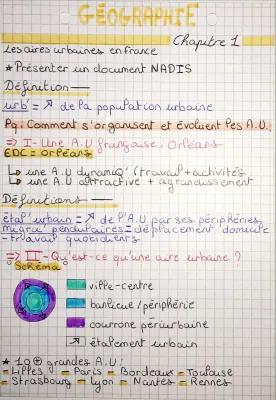 GÉOGRAPHIE
Chapitre 1
Les aires urbaines en france
★ Présenter un document NADIS
Définition
urb° = ↗ de la population urbaine
Pq: Comment s'organisent et évoluent les A.U.
⇒ I- Une A.U française, Orléans
EDC = Orléans
↳ une A.U dynamiq' (travail + activités
↳ une A.U attractive + agrandissement
Définitions
étal° urbain = ↗ de l'A.U par ses périphéries
migra° pendulaires = déplacement domicile
- travail quotidiens
⇒ II- Qu'est-ce qu'une aire urbaine ?
Schéma
ville-centre
banlieue/périphérie
couronne périurbaine
↗ étalement urbain
★ 10 ⊕ grandes A.U:
- Lilles - Paris - Bordeaux - Toulouse
- Strasbourg - Lyon - Nantes - Rennes